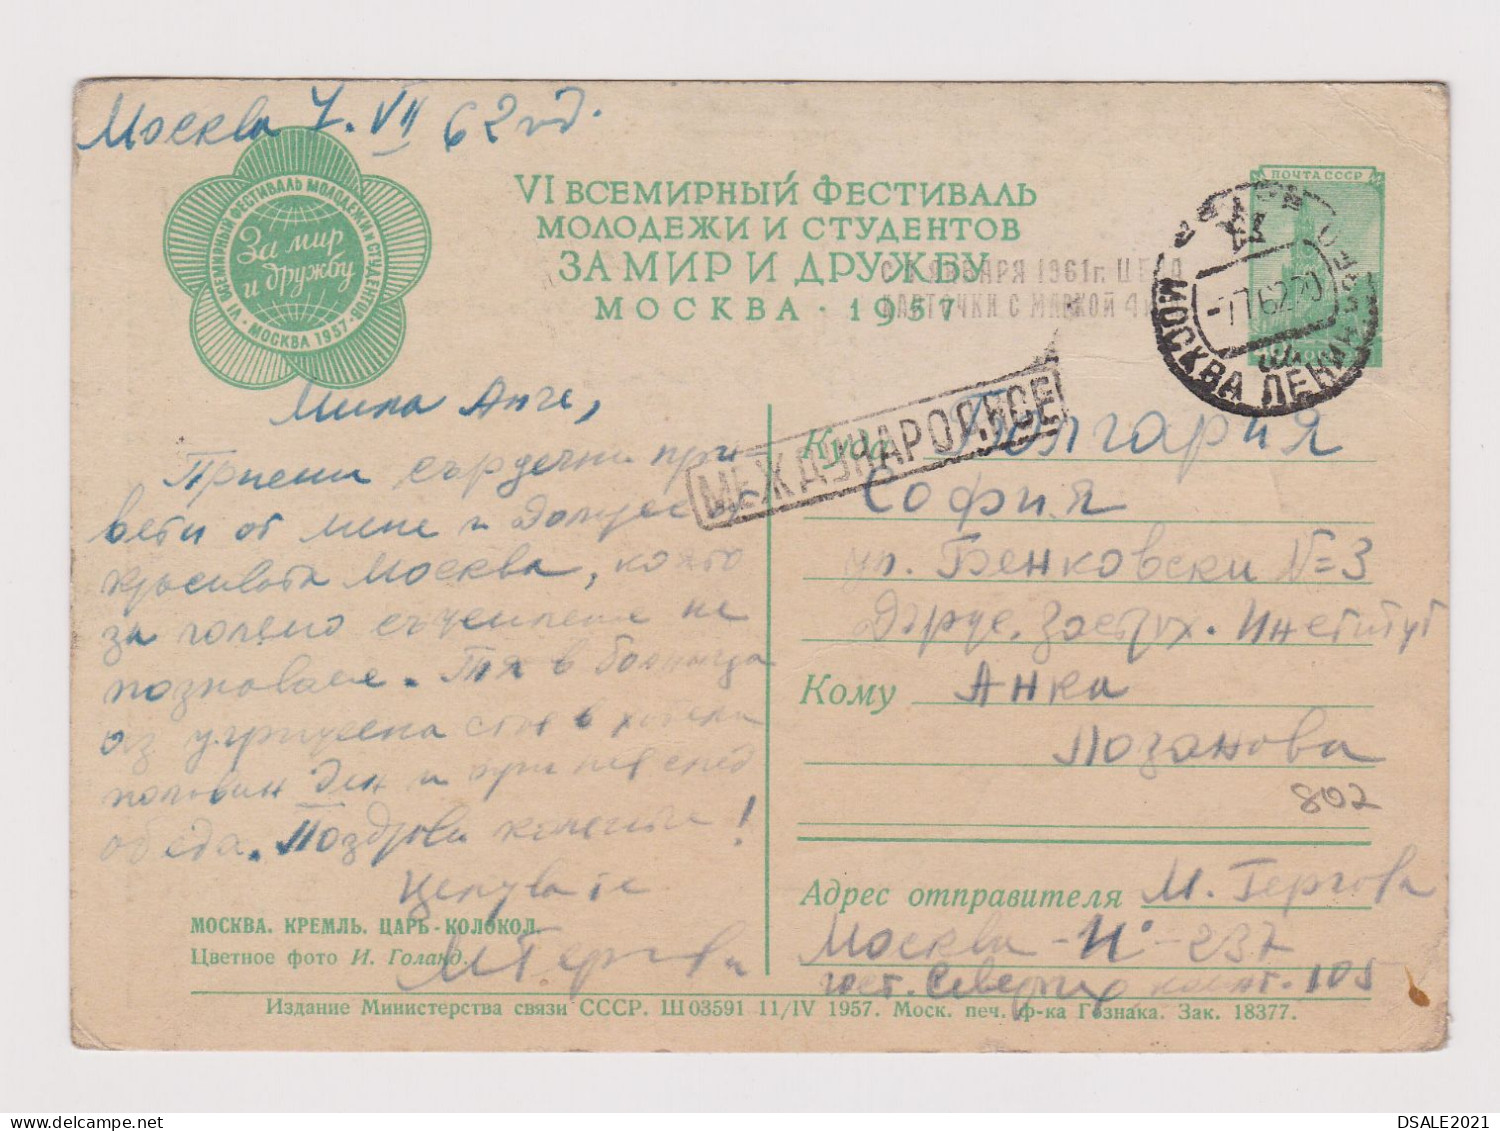 Москва 7. VII 62 год.
VI ВСЕМИРНЫЙ ФЕСТИВАЛЬ МОЛОДЕЖИ И СТУДЕНТОВ
МОСКВА 1957
За мир
и дружбу
VI ВСЕМИРНЫЙ ФЕСТИВАЛЬ
МОЛОДЕЖИ И СТУДЕНТОВ
ЗА МИР И ДРУЖБУ
МОСКВА · 1957
С 1 ЯНВАРЯ 1961 г. ЦЕНА
КАРТОЧКИ С МАРКОЙ 4
ПОЧТА СССР
МОСКВА
-7762
МЕЖДУНАРОДНОЕ
Мила Анче,
Приеми сърдечни при-
вети от мене и
красивата Москва, която
за голямо съжаление не
познаваме. Тя в болницата
аз в хотела
половин ден и при нея след
обеда. Поздрави колегите!
Целувам те
М Гергова
Куда Болгария
София
ул. Бенковски №3
Държ. Застрах. Институт
Кому Анка
Лозанова
802
Адрес отправителя М. Гергова
Москва - И° - 237
гост. Северная комт. 105
МОСКВА. КРЕМЛЬ. ЦАРЬ-КОЛОКОЛ.
Цветное фото И. Голанд.
Издание Министерства связи СССР. Ш 03591 11/IV 1957. Моск. печ. ф-ка Гознака. Зак. 18377.
DSALE2021